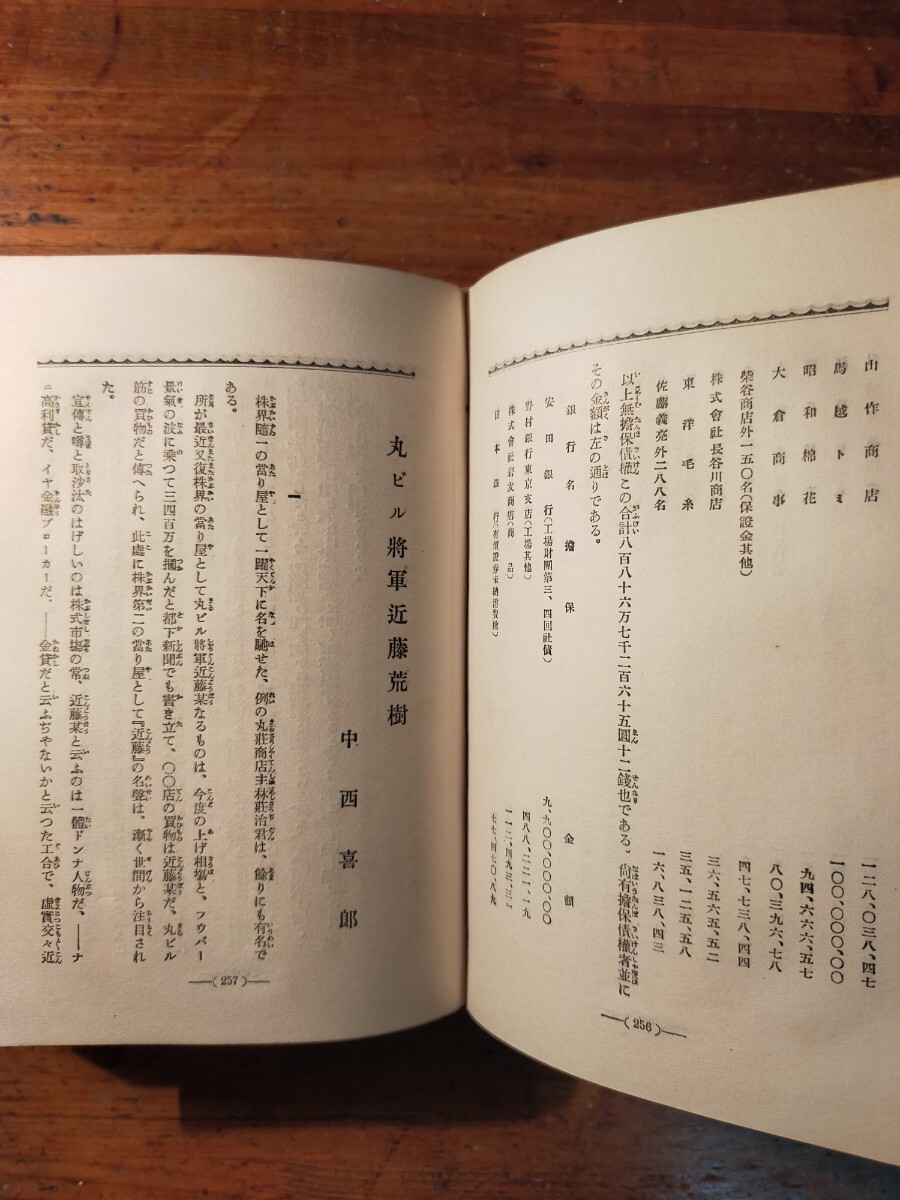 山作商店 一二八、〇三八、四七
馬越トミ 一〇〇、〇〇〇、〇〇
昭和棉花 九四、六六六、五七
大倉商事 八〇、三九六、七八
柴谷商店外一五〇名(保證金其他) 四七、七三八、四四
株式會社長谷川商店 三六、五六五、五二
東洋毛糸 三五、一二五、五八
佐藤義亮外二八八名 一六、八三八、四三
以上無擔保債權この合計八百八十六万七千二百六十五圓十二錢也である。尙有擔保債權者並に
その金額は左の通りである。
銀行名 擔保 金額
安田銀行(工場財團第三、四回社債) 九、九〇〇、〇〇〇、〇〇
野村銀行東京支店(工場其他) 四八八、二二一、一九
株式會社岩友商店(商品) 一一二、四九三、三一
日本銀行(有價證券未納治費稅) 七七、四七〇、八九
—(256)—
丸ビル將軍近藤荒樹
中西喜郎
一
株界隨一の當り屋として一躍天下に名を馳せた、例の丸莊商店主林莊治君は、餘りにも有名で
ある。
所が最近又復株界の當り屋として丸ビル將軍近藤某なるものは、今度の上げ相場と、フウバー
景氣の波に乘つて三四百万を摑んだと都下新聞でも書き立て、〇〇店の買物は近藤某だ、丸ビル
筋の買物だと傳へられ、此處に株界第二の當り屋として『近藤』の名聲は、漸く世間から注目され
た。
宣傳と噂と取沙汰のはげしいのは株式市場の常、近藤某と云ふのは一體ドンナ人物だ、——ナ
ニ高利貸だ、イヤ金融ブローカーだ、——金貸だと云ふぢやないかと云つた工合で、虛實交々近
—(257)—